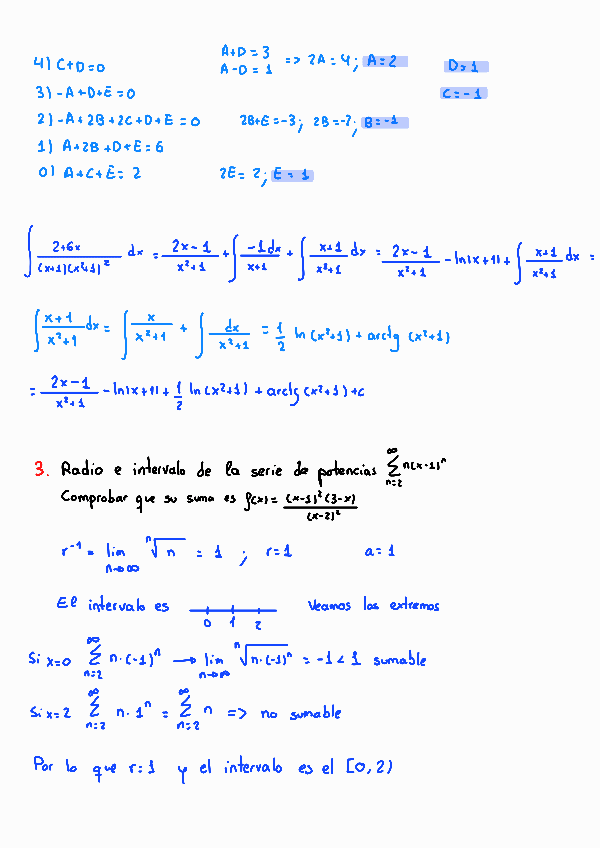 4) C+D=0   A+D=3 => 2A=4; A=2   D=1
A-D=1
3) -A+D+E=0   C=-1
2) -A+2B+2C+D+E=0   2B+E=-3; 2B=-2; B=-1
1) A+2B+D+E=6
0) A+C+E=2   2E=2; E=1
∫ (2+6x)/((x+1)(x²+1)²) dx = (2x-1)/(x²+1) + ∫ (-1dx)/(x+1) + ∫ (x+1)/(x²+1) dx = (2x-1)/(x²+1) - ln|x+1| + ∫ (x+1)/(x²+1) dx =
∫ (x+1)/(x²+1) dx = ∫ x/(x²+1) + ∫ dx/(x²+1) = 1/2 ln(x²+1) + arctg(x²+1)
= (2x-1)/(x²+1) - ln|x+1| + 1/2 ln(x²+1) + arctg(x²+1) + c
3. Radio e intervalo de la serie de potencias ∑_{n=2}^{∞} n(x-1)ⁿ
Comprobar que su suma es f(x) = ((x-1)²(3-x))/((x-2)²)
r⁻¹ = lim_{n→∞} ⁿ√n = 1 ; r=1   a=1
El intervalo es 0 1 2   Veamos los extremos
Si x=0 ∑_{n=2}^{∞} n·(-1)ⁿ → lim_{n→∞} ⁿ√(n·(-1)ⁿ) = -1 < 1 sumable
Si x=2 ∑_{n=2}^{∞} n·1ⁿ = ∑_{n=2}^{∞} n => no sumable
Por lo que r=1 y el intervalo es el [0,2)